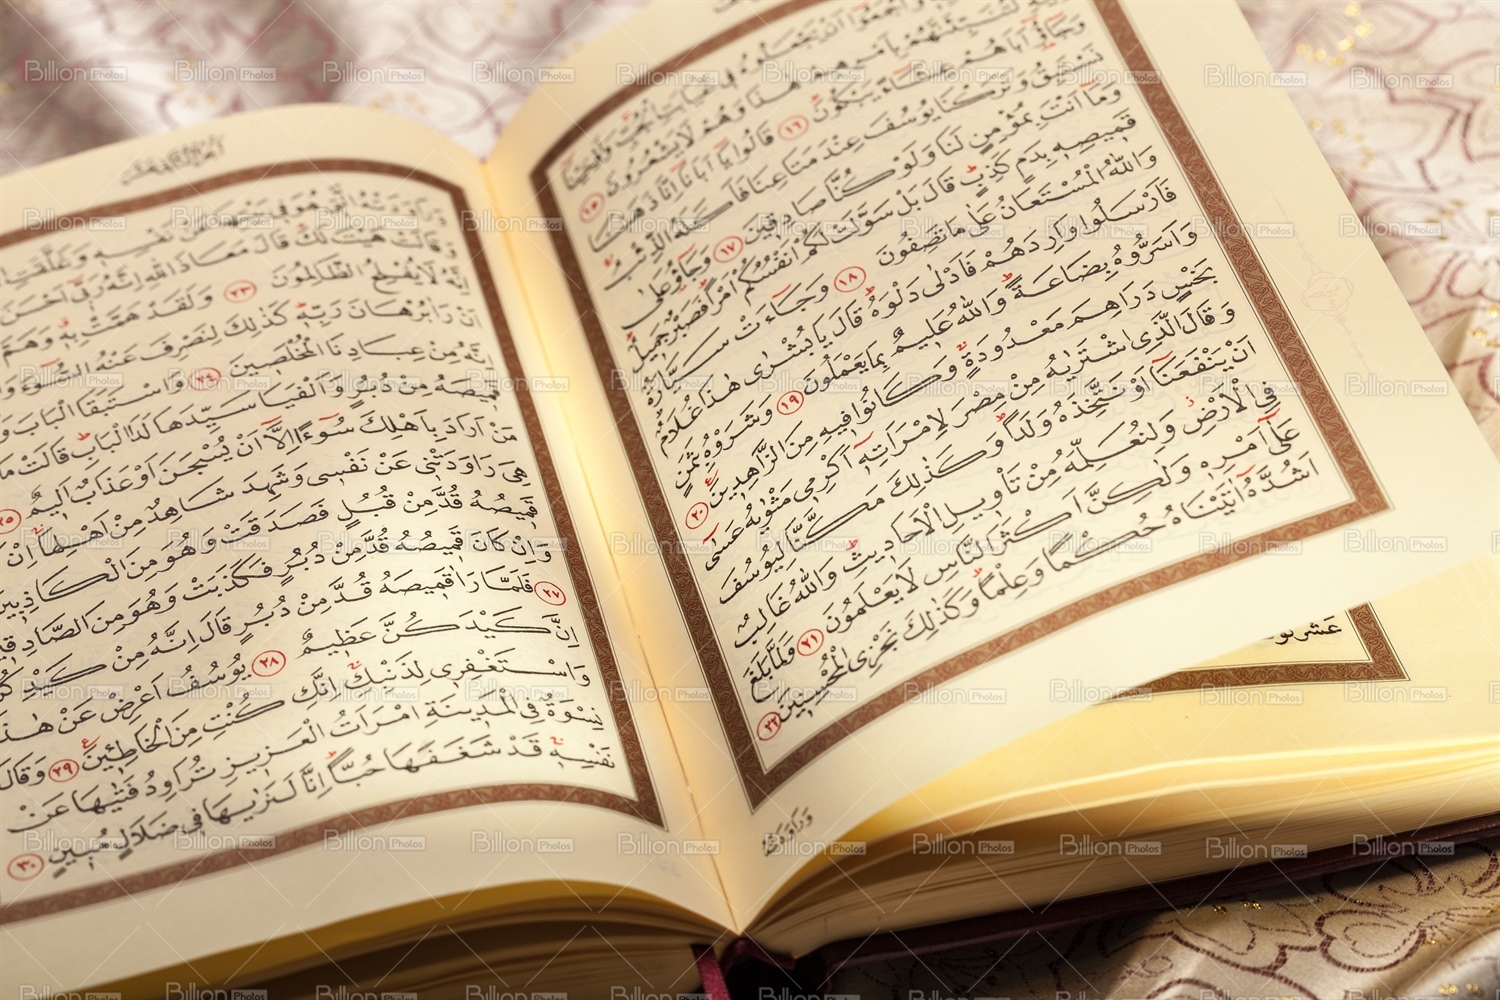 وَاَجْمَعُٓوا اَنْ يَجْعَلُوهُ فِى غَيَابَتِ الْجُبِّ وَاَوْحَيْنَٓا
لَتُنَبِّئَنَّهُمْ بِاَمْرِهِمْ هٰذَا وَهُمْ لَا يَشْعُرُونَ ١٥
وَجَٓاؤُ۫ٓ اَبَاهُمْ عِشَٓاءً يَبْكُونَ ١٦ قَالُوا يَٓا اَبَانَٓا اِنَّا ذَهَبْنَا
نَسْتَبِقُ وَتَرَكْنَا يُوسُفَ عِنْدَ مَتَاعِنَا فَاَكَلَهُ الذِّئْبُ
وَمَٓا اَنْتَ بِمُؤْمِنٍ لَنَا وَلَوْ كُنَّا صَادِقِينَ ١٧ وَجَٓاؤُ۫ عَلٰى
قَمِيصِه۪ بِدَمٍ كَذِبٍ قَالَ بَلْ سَوَّلَتْ لَكُمْ اَنْفُسُكُمْ اَمْرًا فَصَبْرٌ جَمِيلٌ
وَاللّٰهُ الْمُسْتَعَانُ عَلٰى مَا تَصِفُونَ ١٨ وَجَٓاءَتْ سَيَّارَةٌ
فَاَرْسَلُوا وَارِدَهُمْ فَاَدْلٰى دَلْوَهُ قَالَ يَا بُشْرٰى هٰذَا غُلَامٌ
وَاَسَرُّوهُ بِضَاعَةً وَاللّٰهُ عَلِيمٌ بِمَا يَعْمَلُونَ ١٩ وَشَرَوْهُ بِثَمَنٍ
بَخْسٍ دَرَاهِمَ مَعْدُودَةٍ وَكَانُوا فِيهِ مِنَ الزَّاهِدِينَ ٢٠
وَقَالَ الَّذِى اشْتَرٰيهُ مِنْ مِصْرَ لِامْرَاَتِه۪ٓ اَكْرِمِى مَثْوٰيهُ عَسٰٓى
اَنْ يَنْفَعَنَٓا اَوْ نَتَّخِذَهُ وَلَدًا وَكَذٰلِكَ مَكَّنَّا لِيُوسُفَ
فِى الْاَرْضِ وَلِنُعَلِّمَهُ مِنْ تَاْوِيلِ الْاَحَادِيثِ وَاللّٰهُ غَالِبٌ
عَلٰٓى اَمْرِه۪ وَلٰكِنَّ اَكْثَرَ النَّاسِ لَا يَعْلَمُونَ ٢١ وَلَمَّا بَلَغَ
اَشُدَّهُٓ اٰتَيْنَاهُ حُكْمًا وَعِلْمًا وَكَذٰلِكَ نَجْزِى الْمُحْسِنِينَ ٢٢
وَرَاوَدَتْهُ
وَرَاوَدَتْهُ الَّتِى هُوَ فِى بَيْتِهَا عَنْ نَفْسِه۪ وَغَلَّقَتِ
وَقَالَتْ هَيْتَ لَكَ قَالَ مَعَاذَ اللّٰهِ اِنَّهُ رَبِّٓى اَحْسَنَ
اِنَّهُ لَا يُفْلِحُ الظَّالِمُونَ ٢٣ وَلَقَدْ هَمَّتْ بِه۪ وَهَمَّ
اَنْ رَاٰ بُرْهَانَ رَبِّه۪ كَذٰلِكَ لِنَصْرِفَ عَنْهُ السُّٓوءَ
اِنَّهُ مِنْ عِبَادِنَا الْمُخْلَصِينَ ٢٤ وَاسْتَبَقَا الْبَابَ
قَمِيصَهُ مِنْ دُبُرٍ وَاَلْفَيَا سَيِّدَهَا لَدَا الْبَابِ قَالَتْ مَا
مَنْ اَرَادَ بِاَهْلِكَ سُٓوءًا اِلَّٓا اَنْ يُسْجَنَ اَوْ عَذَابٌ اَلِيمٌ ٢٥
هِىَ رَاوَدَتْنِى عَنْ نَفْسِى وَشَهِدَ شَاهِدٌ مِنْ اَهْلِهَا اِنْ
قَمِيصُهُ قُدَّ مِنْ قُبُلٍ فَصَدَقَتْ وَهُوَ مِنَ الْكَاذِبِينَ
وَاِنْ كَانَ قَمِيصُهُ قُدَّ مِنْ دُبُرٍ فَكَذَبَتْ وَهُوَ مِنَ الصَّادِقِينَ
٢٧ فَلَمَّا رَاٰ قَمِيصَهُ قُدَّ مِنْ دُبُرٍ قَالَ اِنَّهُ مِنْ كَيْدِ
اِنَّ كَيْدَكُنَّ عَظِيمٌ ٢٨ يُوسُفُ اَعْرِضْ عَنْ هٰذَا
وَاسْتَغْفِرِى لِذَنْبِكِ اِنَّكِ كُنْتِ مِنَ الْخَاطِـِٔينَ ٢٩ وَقَالَ
نِسْوَةٌ فِى الْمَدِينَةِ امْرَاَتُ الْعَزِيزِ تُرَاوِدُ فَتٰيهَا عَنْ
نَفْسِه۪ قَدْ شَغَفَهَا حُبًّا اِنَّا لَنَرٰيهَا فِى ضَلَالٍ مُبِينٍ ٣٠
Billion Photos